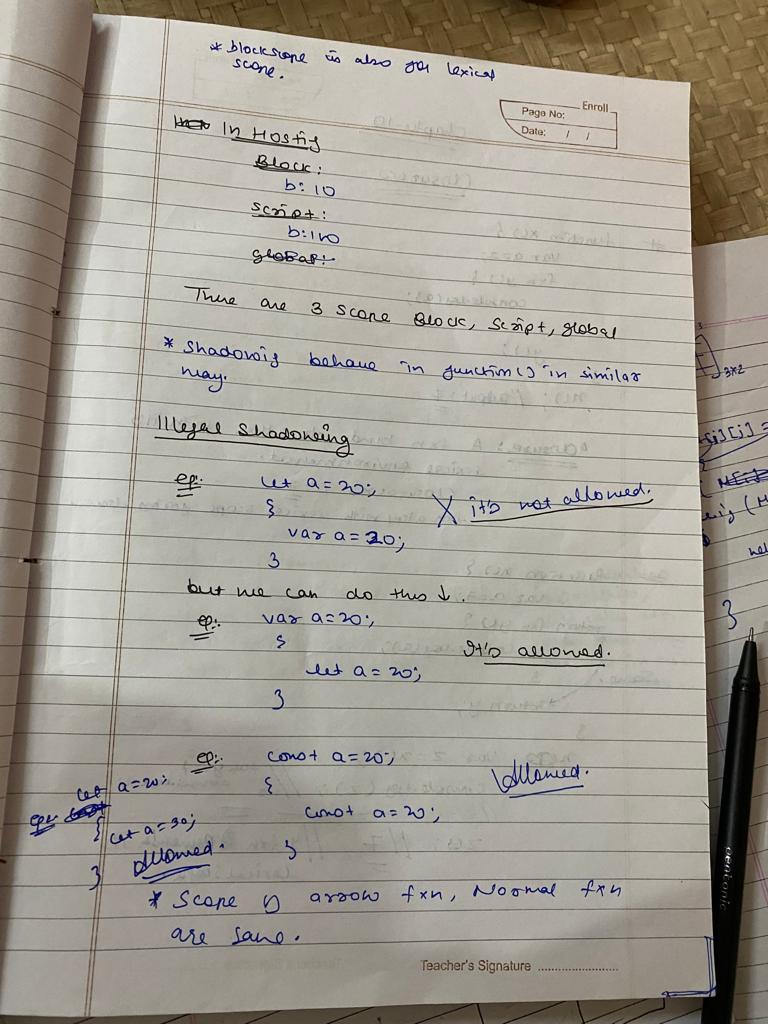 * blockscope is also for lexical
scope.
Enroll
Page No:
Date: / /
In Hostig
Block:
b: 10
Script:
b: 100
Global:
There are 3 scope Block, Script, global
* Shadowig behave in function() in similar
way.
Illegal Shadowing
eg:. let a = 20;
{
var a = 20;
}
X it's not allowed.
but we can do this ↓.
eg:. var a = 20;
{
let a = 20;
}
It's allowed.
eg:. const a = 20;
{
const a = 20;
}
Allowed.
let a = 20;
eg:
{ let a = 30;
}
Allowed.
* Scope of arrow fxn, Normal fxn
are same.
Teacher's Signature ........................
3x2
[j] =
}
pentonic